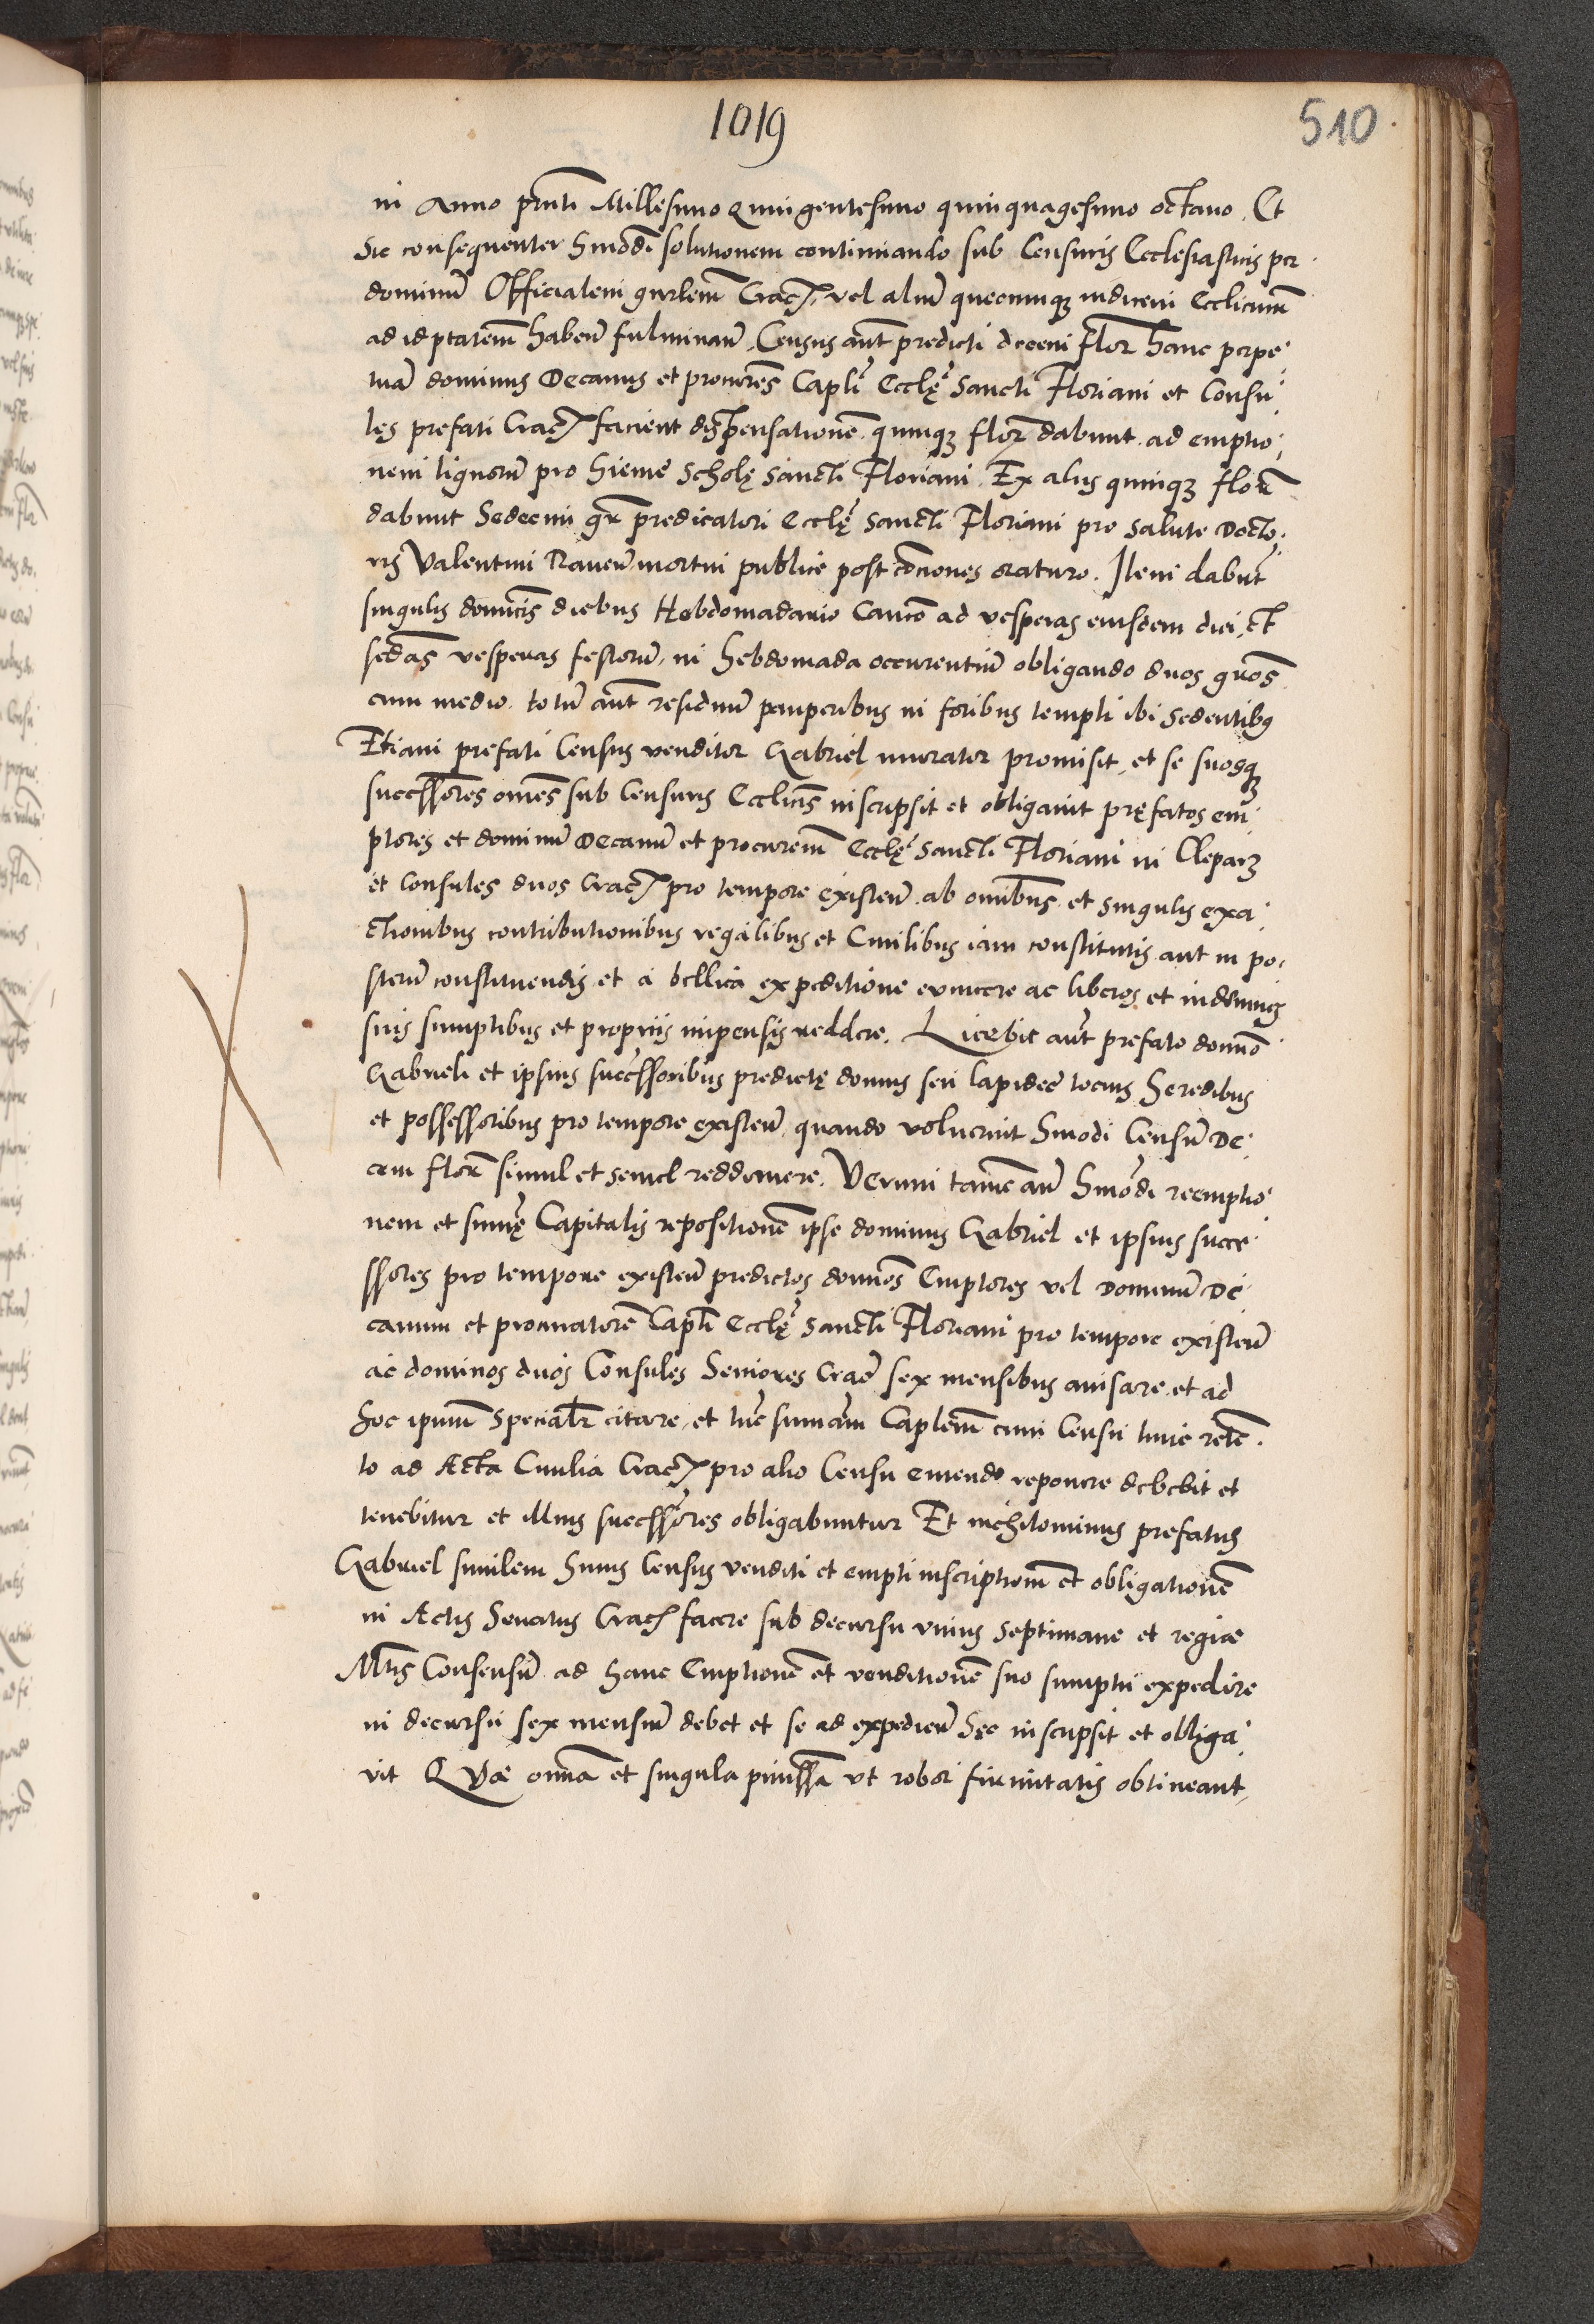 1019
510
in Anno pñti Millesimo Quingentesimo quinquagesimo octauo, Et
Sic consequenter hmõdi solutionem continuando sub Censuris Ecclesiasticis per
dominũ Officialem gñrlem Crac. vel aliũ quecunq3 iudicem Ecclicum
ad id ptatem habeñ fulminañ, Census aũt predicti decem Flor hanc perpe
tuã dominus Decanus et procures Capli Ecclę Sancti Floriani et Consu
les prefati Crac. facient dispensationem quinq3 flor dabunt ad emptio
nem lignorũ pro hieme Scholę Sancti Floriani. Ex aliis quinq3 flor
dabunt Sedecim gr predicatori Ecclę Sancti Floriani pro salute Docto
ris Valentini mortui publice post cõciones oraturo. Item dabũt
singulis domicis diebus Hebdomadario Canco ad vesperas eiusdem diei, et
secdas vesperas festorũ, in hebdomada occurentiũ obligando duos gros
cum medio. totũ aũt residuũ pauperibus in foribus templi ibi sedentibg
Etiam prefati Census venditor Gabriel murator promisit, et se suosq3
successores omẽs sub Censuris Ecclicis inscripsit et obligauit pręfatos em
ptores et dominũ Decanũ et procurem Ecclę Sancti Floriani in Clepar3
et Consules duos Crac. pro tempore existeñ ab omnibus et singulis exa
ctionibus contributionibus regalibus et Ciuilibus iam constitutis aut in po
sterũ constituendis et a bellica expeditione euincere ac liberos et indemnis
suis sumptibus et propriis impensis reddere. Licebit aũt prefato domno
Gabrieli et ipsius successoribus predictę domus seu lapidee tocius heredibus
et possessoribus pro tempore existeñ, quando voluerint hmodi Censũ De
cem flor simul et semel reddimere. Verum tamẽ añ hmõdi reemptio
nem et sumę Capitalis repositionẽ ipse dominus Gabriel et ipsius succe
ssores pro tempore existeñ predictos domnos Emptores vel Dominũ De
canum et procuratorẽ Capli Ecclę Sancti Floriani pro tempore existeñ
ac dominos duos Consules Seniores Crac sex mensibus auisare et ad
hoc ipsum specialr citare, et tũc sumam Caplem cum Censu tunc reten
to ad Acta Ciuilia Crac. pro alio Censu emendo reponere debebit et
tenebitur et illius successores obligabuntur Et nichilominus prefatus
Gabriel similem huius Census venditi et empti inscriptionem et obligationẽ
in Actis Senatus Crac facere sub decursu vnius septimane et regiae
Mtis Consensũ ad hanc Emptionẽ et venditionẽ suo sumptu expedire
in decursu sex mensiũ debet et se ad expedieñ hęc inscripsit et obliga
vit QVae omnia et singula pmissa vt robor firmitatis obtineant